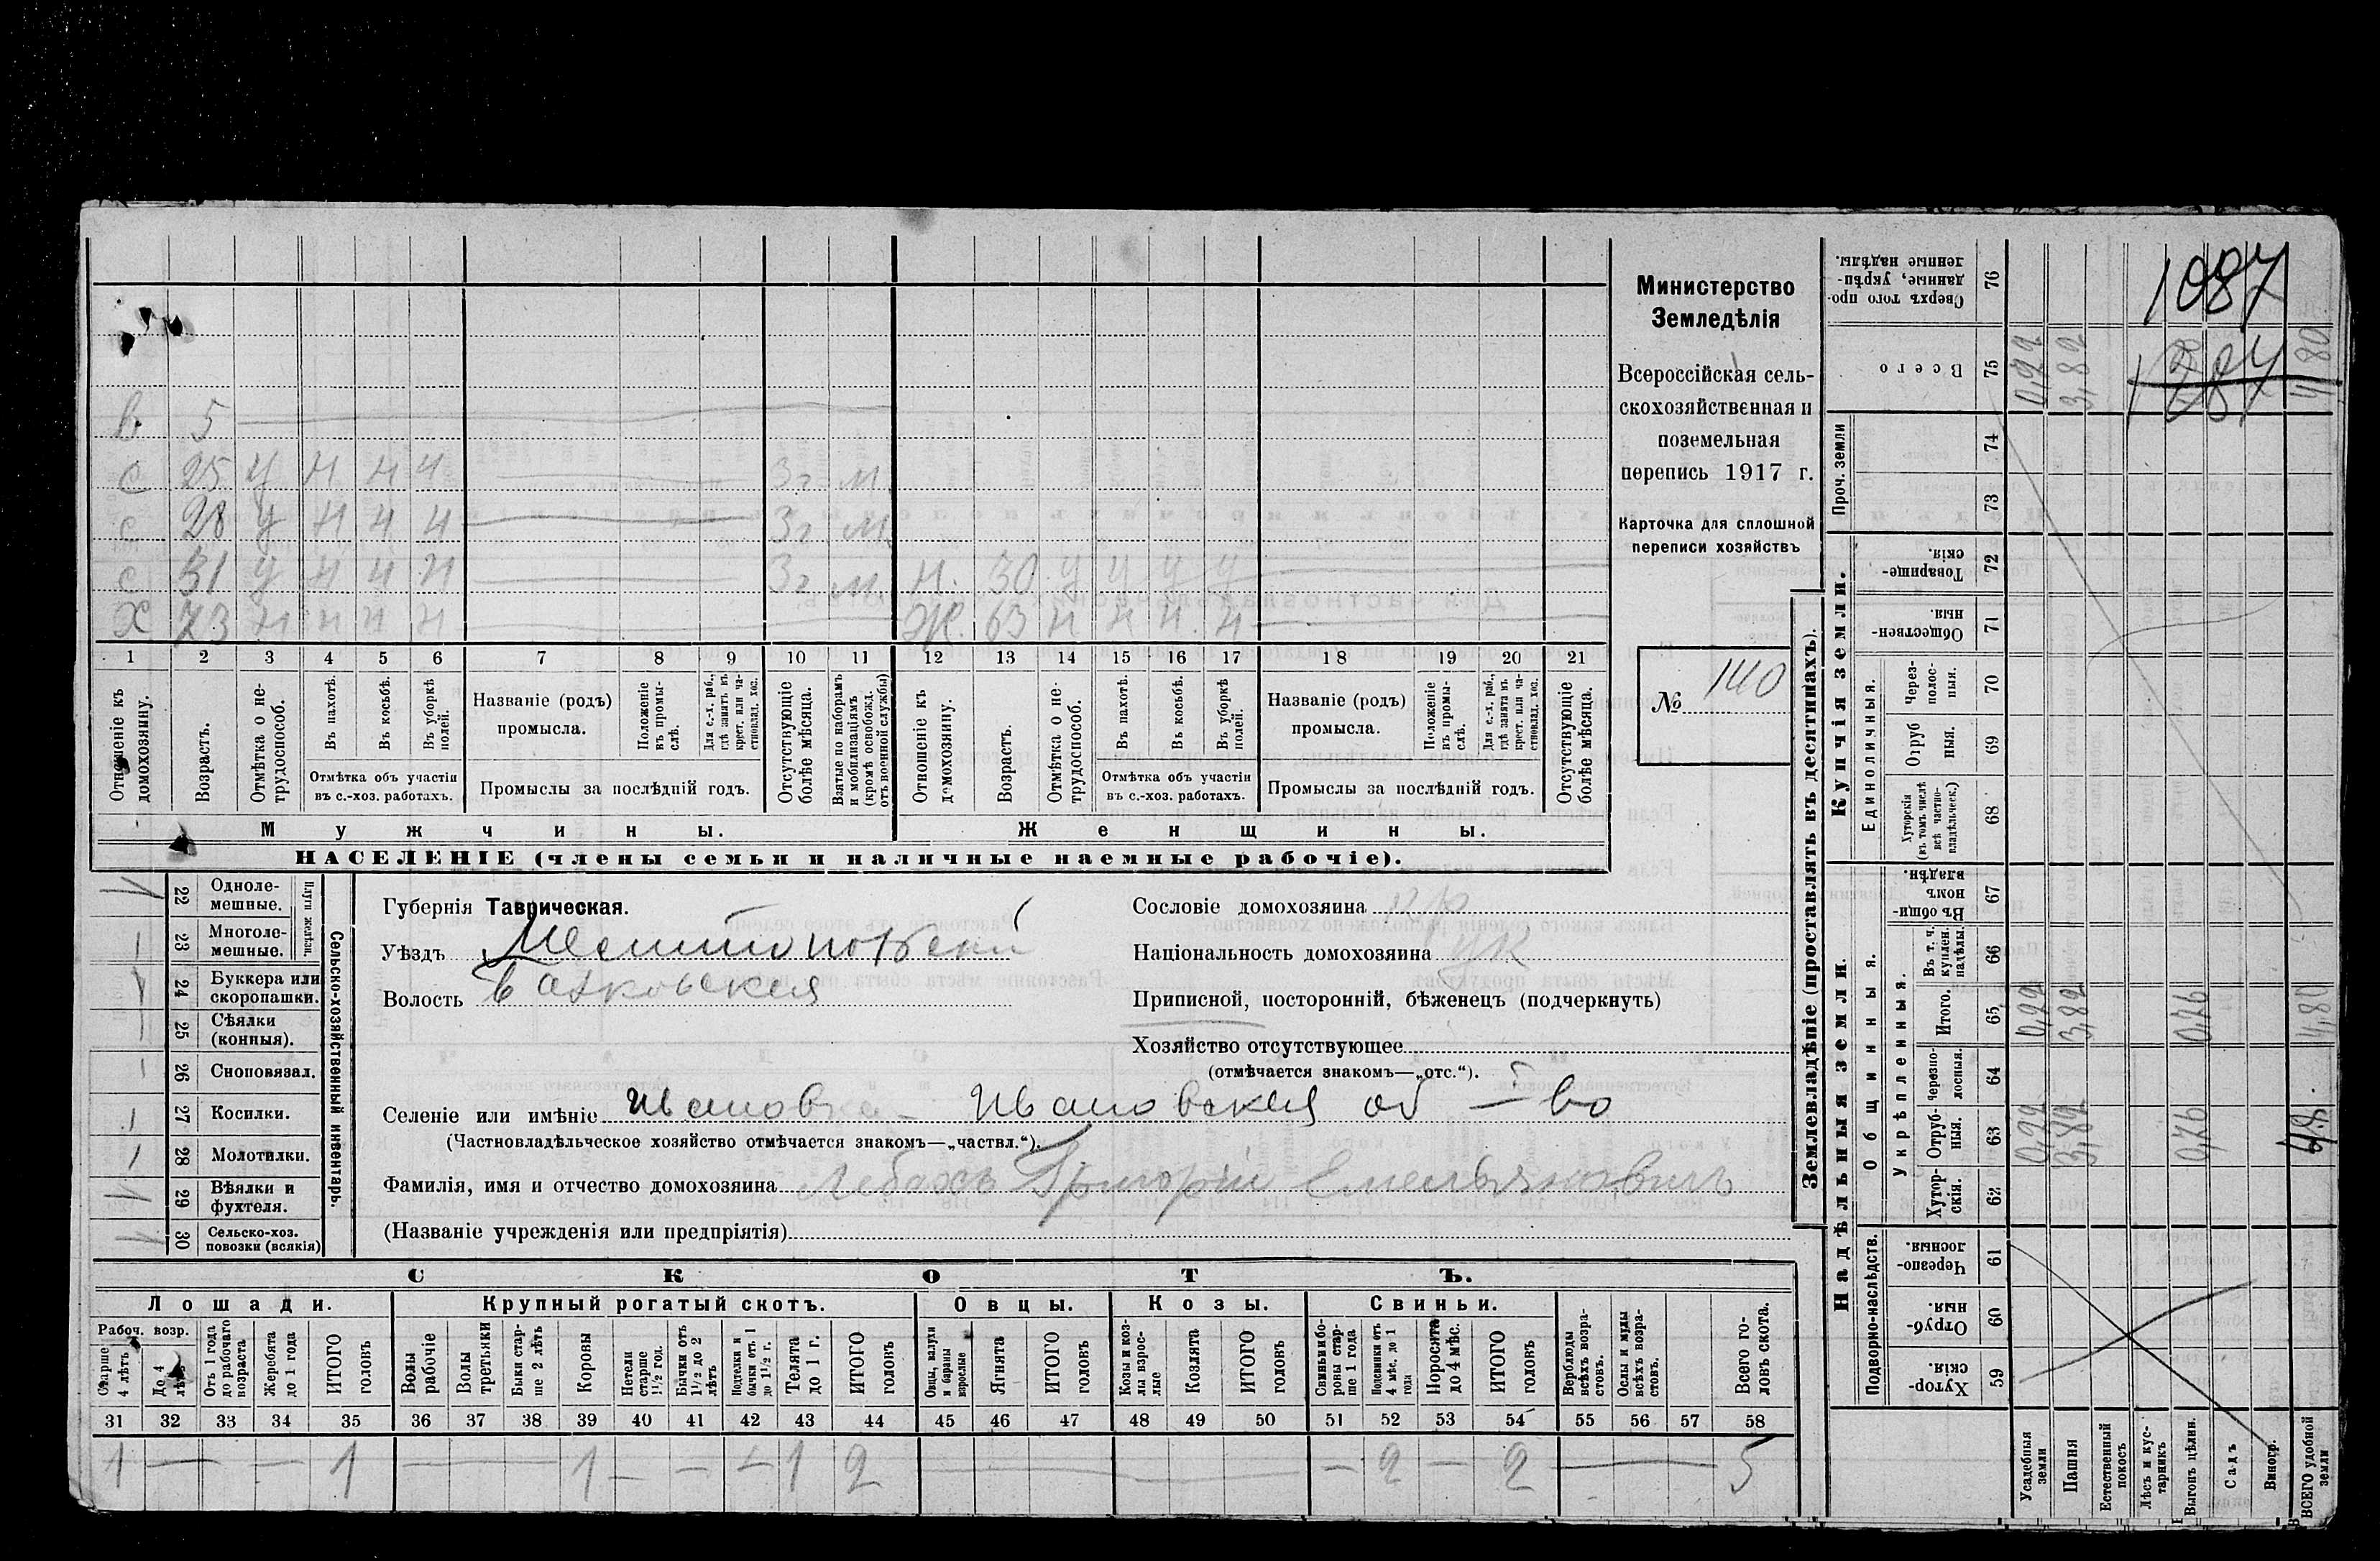 Министерство
Земледѣлія
Всероссійская сель-
скохозяйственная и
поземельная
перепись 1917 г.
Карточка для сплошной
переписи хозяйствъ
№ 140
в. 5
с 25 у н н н 3 г. м.
с 28 у н н н 3 г. м.
с 31 у н н н 3 г. м. н. 30 у у у у
х 73 н н н н Ж. 63 н н н н
1 2 3 4 5 6 7 8 9 10 11 12 13 14 15 16 17 18 19 20 21
Отношеніе къ домохозяину.
Возрастъ.
Отмѣтка о не-трудоспособ.
Въ пахотѣ.
Въ косьбѣ.
Въ уборкѣ полей.
Отмѣтка объ участіи
въ с.-хоз. работахъ.
Названіе (родъ)
промысла.
Положеніе въ промы-слѣ.
Для с.-х. раб., гдѣ занятъ въ крест. или ча-стновлад. хоз.
Промыслы за послѣдній годъ.
Отсутствующіе болѣе мѣсяца.
Взятые по наборамъ и мобилизаціямъ (кромѣ освобожд. отъ военной службы)
Отношеніе къ домохозяину.
Возрастъ.
Отмѣтка о не-трудоспособ.
Въ пахотѣ.
Въ косьбѣ.
Въ уборкѣ полей.
Отмѣтка объ участіи
въ с.-хоз. работахъ.
Названіе (родъ)
промысла.
Положеніе въ промы-слѣ.
Для с.-х. раб., гдѣ занята въ крест. или ча-стновлад. хоз.
Промыслы за послѣдній годъ.
Отсутствующіе болѣе мѣсяца.
Мужчины.
Женщины.
НАСЕЛЕНІЕ (члены семьи и наличные наемные рабочіе).
Сельско-хозяйственный инвентарь.
Плуги желѣзн.
22 Одноле-мешные.
23 Многоле-мешные.
24 Буккера или скоропашки.
25 Сѣялки (конныя).
26 Сноповязал.
27 Косилки.
28 Молотилки.
29 Вѣялки и фухтеля.
30 Сельско-хоз. повозки (всякія)
Губернія Таврическая.
Уѣздъ Мелитопольскій
Волость
Сословіе домохозяина кр
Національность домохозяина ук
Приписной, посторонній, бѣженецъ (подчеркнуть)
Хозяйство отсутствующее
(отмѣчается знакомъ—„отс.“).
Селеніе или имѣніе Ивановка - Ивановская об-во
(Частновладѣльческое хозяйство отмѣчается знакомъ—„частвл.“).
Фамилія, имя и отчество домохозяина Григорій Емельяновичъ
(Названіе учрежденія или предпріятія)
СКОТЪ.
Лошади.
Крупный рогатый скотъ.
Овцы.
Козы.
Свиньи.
Рабоч. возр.
Старше 4 лѣтъ
До 4 лѣтъ
Отъ 1 года до рабочаго возраста
Жеребята до 1 года
ИТОГО головъ
Волы рабочіе
Волы третьяки
Быки стар-ше 2 лѣтъ
Коровы
Нетели старше 1½ год.
Бычки отъ 1½ до 2 лѣтъ
Подтелки и бычки отъ 1 до 1½ г.
Телята до 1 г.
ИТОГО головъ
Овцы, валухи и бараны взрослые
Ягнята
ИТОГО головъ
Козы и коз-лы взрос-лые
Козлята
ИТОГО головъ
Свиньи и бо-ровы стар-ше 1 года
Подсвинки отъ 4 мѣс. до 1 года
Поросята до 4 мѣс.
ИТОГО головъ
Верблюды всѣхъ возра-стовъ.
Ослы и мулы всѣхъ возра-стовъ.
Всего го-ловъ скота.
31 32 33 34 35 36 37 38 39 40 41 42 43 44 45 46 47 48 49 50 51 52 53 54 55 56 57 58
1 — — 1 — 1 — — — 1 2 — — 2 — 2 — 5
Землевладѣніе (проставлять въ десятинахъ).
Надѣльныя земли.
Купчія земли.
Проч. земли
Подворно-наслѣдств.
Общинныя.
Укрѣпленныя.
Единоличныя.
Хутор-скія. 59
Отруб-ныя. 60
Черезпо-лосныя. 61
Хутор-скія. 62
Отруб-ныя. 63
Черезпо-лосныя. 64
Итого. 65
Въ т. ч. куплен. надѣлы. 66
Въ общи-номъ владѣн. 67
Хуторскія (въ томъ числѣ всѣ частно-владѣльческ.) 68
Отруб ныя. 69
Через-полос-ныя. 70
Обществен-ныя. 71
Товарище-скія. 72
73
74
Всего 75
Сверхъ того про-данные, укрѣп-ленные надѣлы. 76
Усадебныя земли
Пашня
Естественный покосъ
Лѣсъ и кус-тарникъ
Выгонъ цѣлин.
Садъ
Виногр.
ВСЕГО удобной земли
0,22 3,82 0,76 4,80
0,22 3,82 0,76 4,80
0,22 3,82 4,80
1087